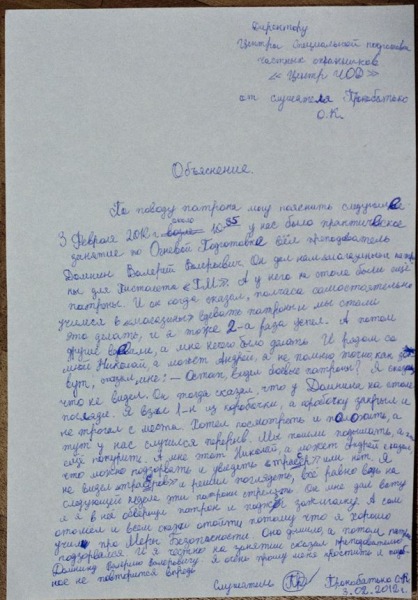 Директору
Центра Специальной подготовки
частных охранников
« Центр ЧОД »
от слушателя Прокобатько
О.К.
Объяснение.
По поводу патрона могу пояснить следующее
3 Февраля 2012 г. около 10 35 у нас было практическое
занятие по Огневой Подготовке вёл преподователь
Домнин Валерий Валерьевич. Он дал нам
ны для пистолета «П.М.» А у него на столе были ещё
патроны. И он когда сказал, полчаса самостоятельно
учимся в «магазен» сдевать патроны и мы стали
это делать, и я тоже 2-а раза успел. А потом
другие вдевали, а мне нечего было делать И рядом со
мной Николай, а может Андрей, а не помню точно как зо-
вут, сказал мне: - Остап, видел боевые патроны? Я сказал
что не видел. Он тогда сказал, что у Домнина на столе
последе. Я взял 1-н из коробочки, а коробочку закрыл и
не трогал с места. Хотел посмотреть и положить, а
тут у нас случился перерыв. Мы пошли подышать, а
ещё покурить. А мне этот Николай, а может Андрей сказал
что можно подзорвать и увидеть «трасёр» или нет. Я
не видел «трасёров» и решил поглядеть, всё равно ведь на
следующей неделе эти патроны стрелять. Он мне дал вату
и я в неё обвернул патрон и поджёг зажигалку. А сам
отошел и всем сказал отойти потому что я хорошо
учил про Меры Безопасности. Оно дымило, а потом патрон
подзорвался И я честно на занятие сказал преподавателю
Домнину Валерию Валерьевичу. Я очень прошу меня простить и
ное не повторится впредь
Слушатель Прокобатько О.К.
3.02.2012 г.